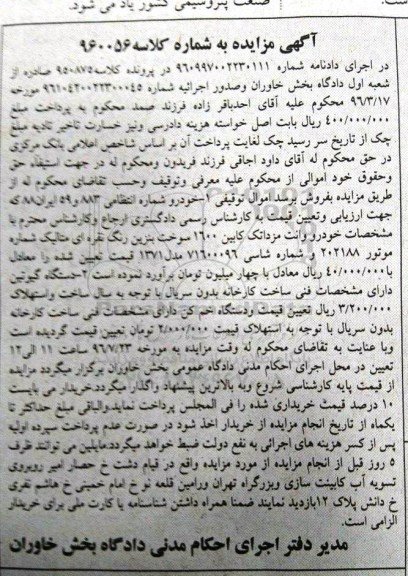 صنعت پتروشیمی کشور یاد می شود.
است.
آگهی مزایده به شماره کلاسه ۹۶۰۰۵۶
در اجرای دادنامه شماره ۹۶۰۹۹۷۰۰۰۲۲۳۰۱۱۱ در پرونده کلاسه ۹۵۰۸۷۵ صادره از
شعبه اول دادگاه بخش خاوران وصدور اجرائیه شماره ۹۶۱۰۴۲۰۰۲۲۳۰۰۰۴۵ مورخه
۹۶/۳/۱۷ محکوم علیه آقای احدباقر زاده فرزند صمد محکوم به پرداخت مبلغ
۴۰۰/۰۰۰/۰۰۰ ریال بابت اصل خواسته هزینه دادرسی ونیز خسارت تاخیر تادیه مبلغ
چک از تاریخ سر رسید چک لغایت پرداخت آن بر اساس شاخص اعلامی بانک مرکزی
در حق محکوم له آقای داود اجاقی فرزند فریدون ومحکوم له در جهت استیفاء حق
وحقوق خود اموالی از محکوم علیه معرفی وتوقیف وحسب تقاضای محکوم له از
طریق مزایده بفروش برسد اموال توقیفی ۱-خودرو شماره انتظامی ۸۸۳ و ۵۹ ایران ۸۸ که
جهت ارزیابی وتعیین قیمت به کارشناس رسمی دادگستری ارجاع وکارشناس محترم با
مشخصات خودرو وانت مزداتک کابین ۱۶۰۰ سوخت بنزین رنگ نقره ای متالیک شماره
موتور ۲۰۲۱۸۸ و شماره شاسی ۷۱۶۰۰۰۹۶ مدل ۱۳۷۱ قیمت تعیین شده را معادل
با ۴۰/۰۰۰/۰۰۰ ریال معادل با چهار میلیون تومان برآورد نموده است ۲-دستگاه گیوتین
دارای مشخصات فنی ساخت کارخانه بدون سریال با توجه به سال ساخت واستهلاک
۳/۲۰۰/۰۰۰ ریال تعیین قیمت ودستگاه خم کن دارای مشخصات فنی ساخت کارخانه
بدون سریال با توجه به استهلاک قیمت ۲/۰۰۰/۰۰۰ تومان تعیین قیمت گردیده است
وبا عنایت به تقاضای محکوم له وقت مزایده به مورخه ۹۶/۷/۲۳ ساعت ۱۱ الی ۱۲
تعیین در محل اجرای احکام مدنی دادگاه عمومی بخش خاوران برگزار میگردد مزایده
از قیمت پایه کارشناسی شروع وبه بالاترین پیشنهاد واگذار میگردد.خریدار می بایست
۱۰ درصد قیمت خریداری شده را فی المجلس پرداخت نماید.والباقی مبلغ حداکثر تا
یکماه از تاریخ انجام مزایده از خریدار اخذ شود در صورت عدم پرداخت سپرده اولیه
پس از کسر هزینه های اجرائی به نفع دولت ضبط خواهد میگردد.مایلین می توانند ظرف
۵ روز قبل از انجام مزایده از مورد مزایده واقع در قیام دشت خ حصار امیر روبروی
تسویه آب کابینت سازی ویزرگراه تهران ورامین قلعه نو خ امام خمینی خ هاشم نفری
خ دانش پلاک ۱۲ بازدید نمایند ضمنا همراه داشتن شناسنامه یا کارت ملی برای خریدار
الزامی است.
مدیر دفتر اجرای احکام مدنی دادگاه بخش خاوران